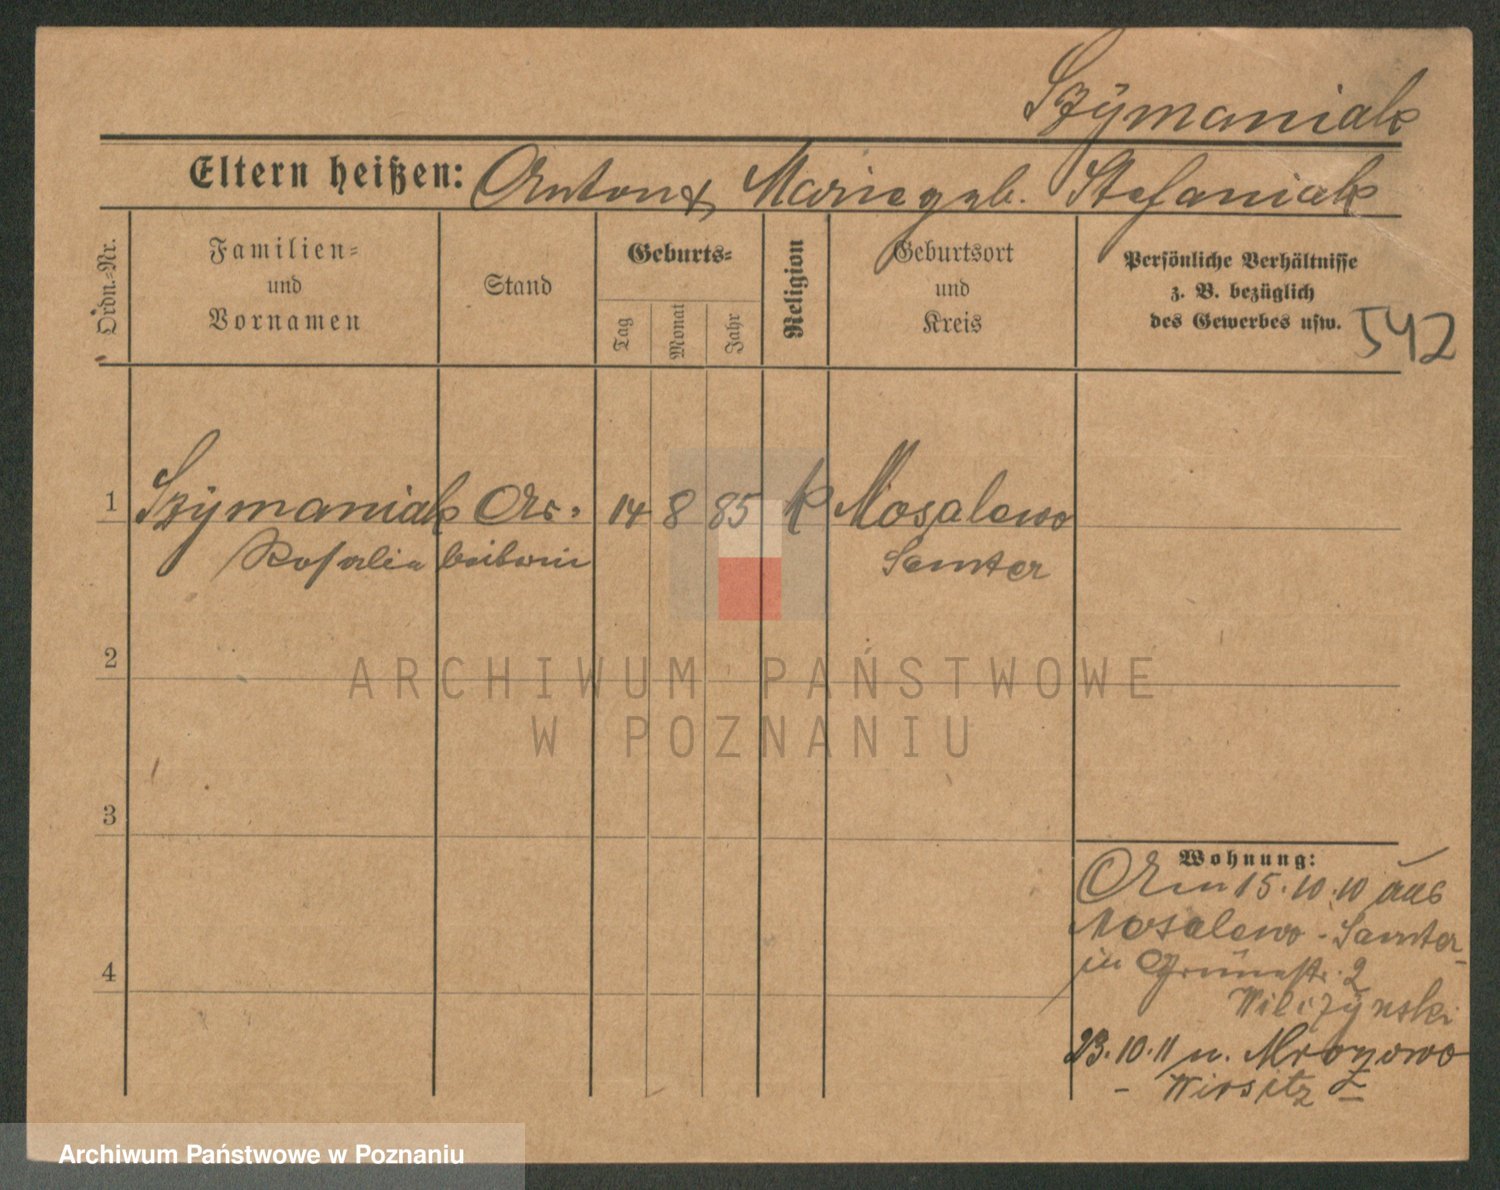 Szÿmaniak
Eltern heißen: Anton & Marie geb. Stefaniak
Ordn.-Nr.
Familien=
und
Vornamen
Stand
Geburts=
Tag
Monat
Jahr
Religion
Geburtsort
und
Kreis
Persönliche Verhältnisse
z. B. bezüglich
des Gewerbes usw.
542
1 Szÿmaniak Ar= 14 8 85 k Mosalewo
Rosalie beiterin Samter
2
3
4
ARCHIWUM PAŃSTWOWE
W POZNANIU
Wohnung:
15.10.10 aus
Mosalewo - Samter
in Grünestr. 2
Wilczÿnski
23.10.11 n. Mrozowo
- Wirsitz
Archiwum Państwowe w Poznaniu